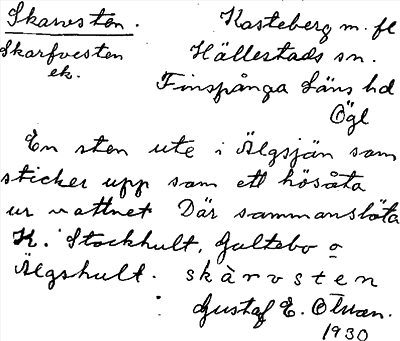 Skarvsten. Kasteberg m. fl
Skarfvesten Hällestads sn.
ek. Finspånga Läns hd
Ögl
En sten ute i Älgsjön som
sticker upp som ett hösåta
ur vattnet Där sammanstöta
K. Stockhult, Galtebo o
Älgshult. skàrvsten
Gustaf E. Öman.
1930